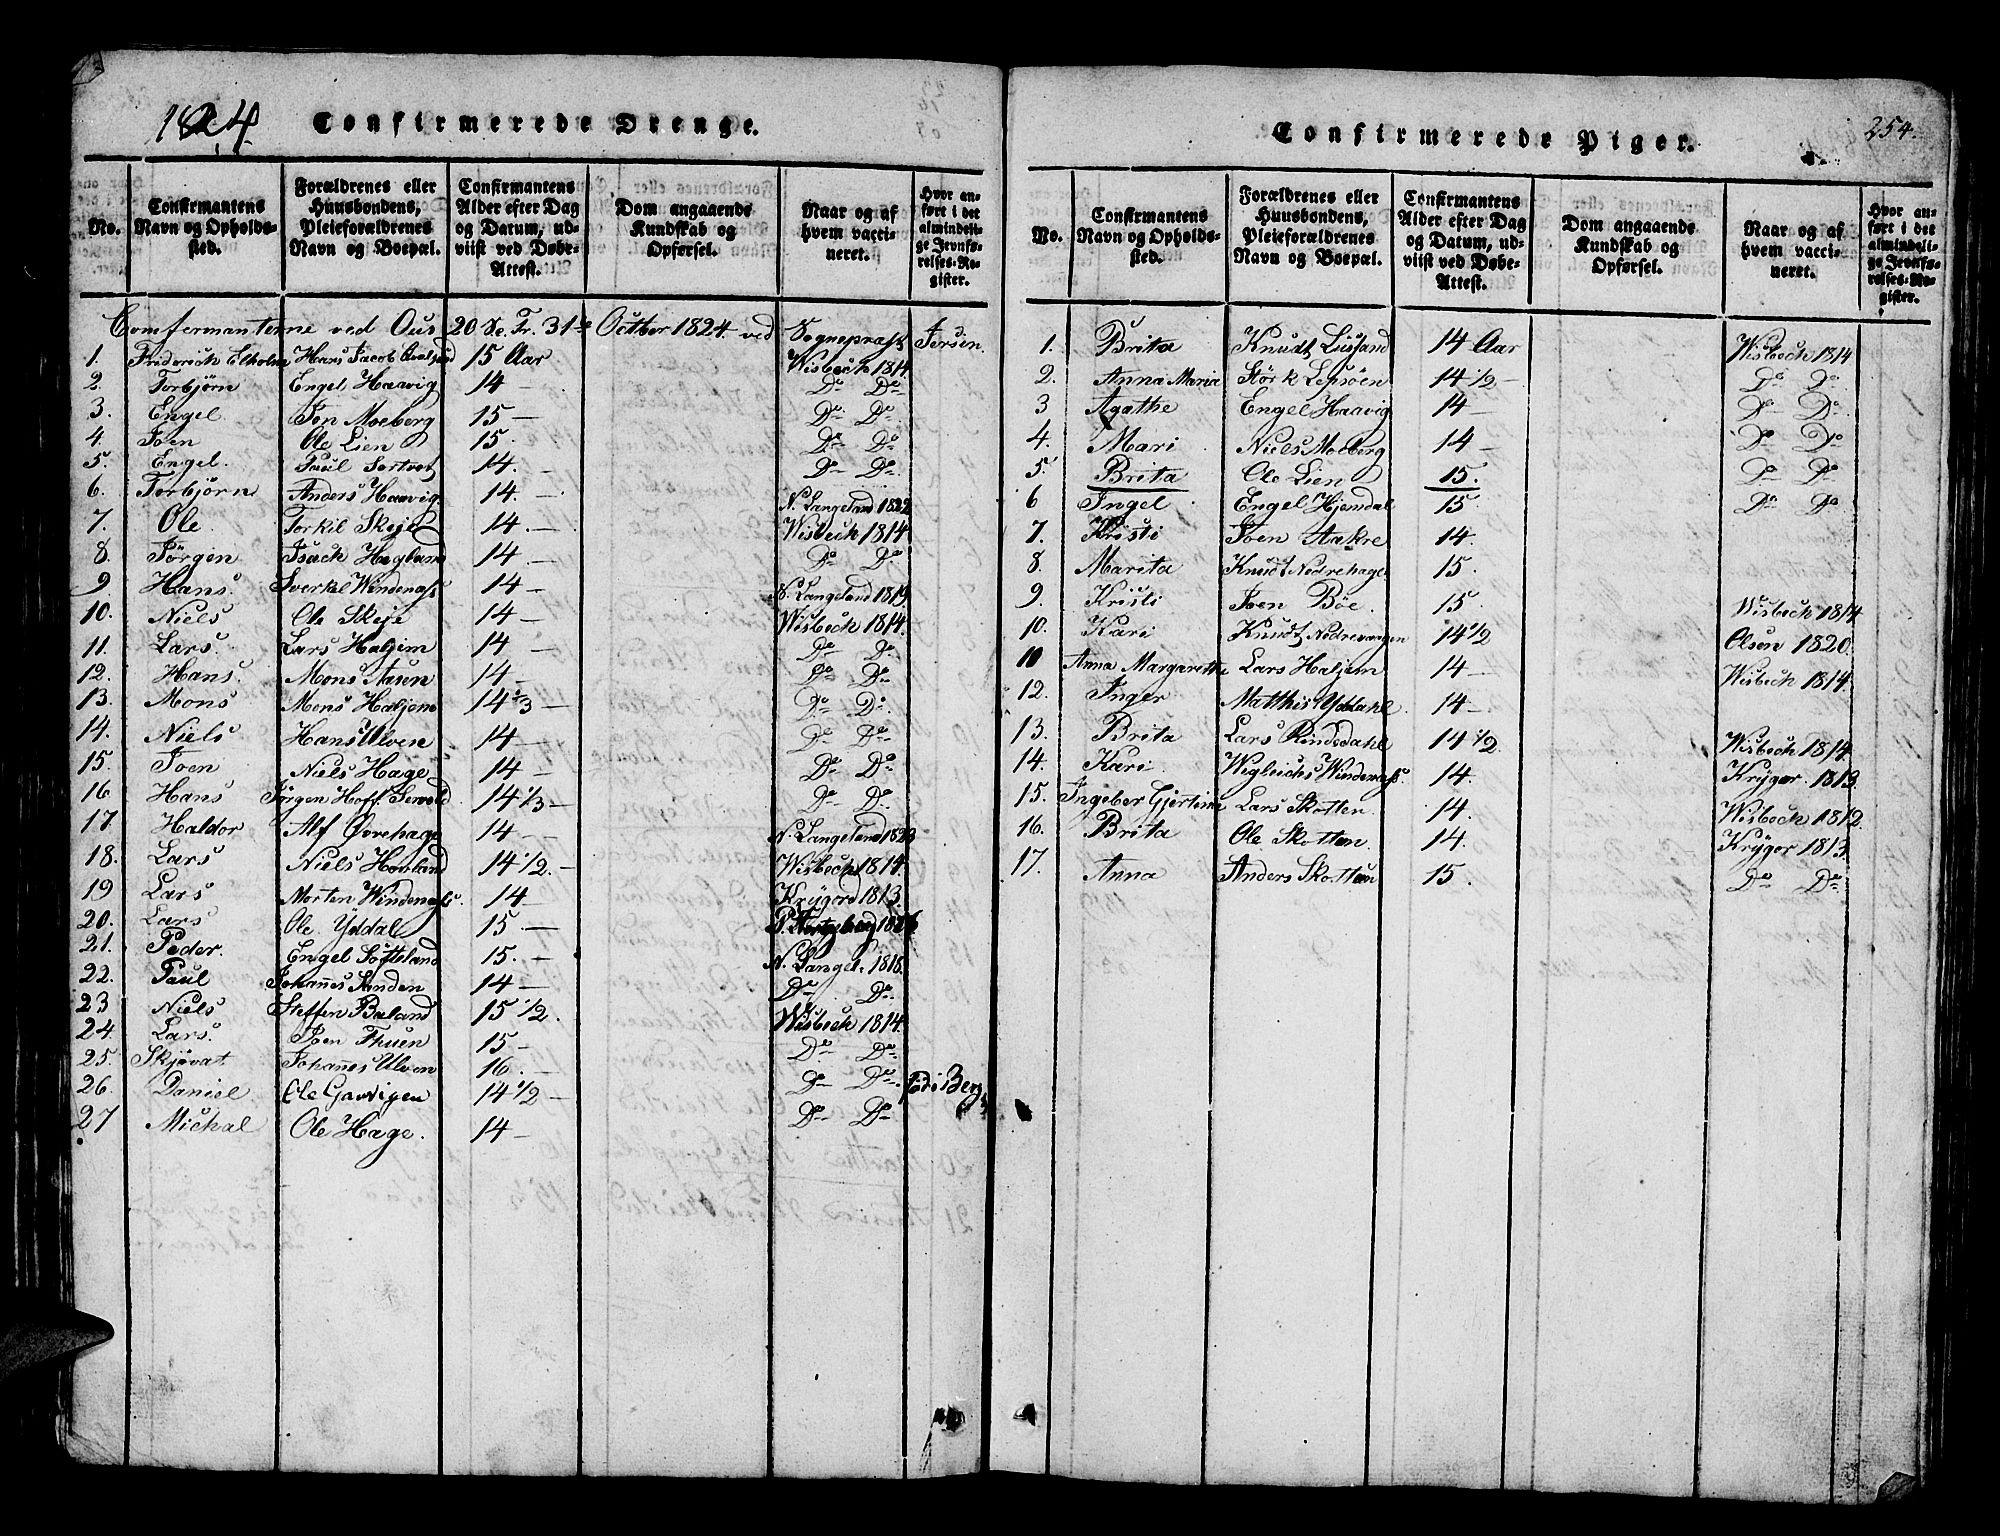 1824
Confirmerede Drenge.
No.
Confirmantens Navn og Opholds-sted.
Forældrenes eller Huusbondens, Pleieforældrenes Navn og Boepæl.
Confirmantens Alder efter Dag og Datum, ud-viist ved Døbe-Attest.
Dom angaaende Kundskab og Opførsel.
Naar og af hvem vacci-neret.
Hvor an-ført i det almindeli-ge Jevnfø-relses-Re-gister.
Comfermanterne ved Ous 20 Se. Tr. 31te Octber 1824 ved Sognepræst Jersen.
1. Friderich Elholm Hans Jacob 15 Aar Wisbech 1814
2. Torbjørn Engel Haavig 14 - Do Do
3. Engel. Jon Moeberg 15 - Do Do
4. Joen Ole Lien 15. Do Do
5. Engel. Paul Sortvet 14. - Do Do
6. Torbjørn Anders Haavig 14. - N. Langeland 1822
7. Ole Torkil Skeje 14. - Wisbech 1814
8. Jørgen Isach Hegland 14 - Do Do
9 Hans. Sverkel Windenæss 14 - N. Langeland 1819
10. Niels Ole Skeje 14 - Wisbech 1814.
11. Lars. Lars Haljem 14 - Do Do
12. Hans. Mons 14 - Do Do
13. Mons Mons Haljem 14 2/3 - Do Do
14. Niels Hans Ulven 14 - Do Do
15. Joen Niels Hage 14 - Do Do
16 Hans Jørgen Hoff 14 1/3 - Do Do
17 Haldor Alf Øvrehage 14 - N. Langeland 1823
18. Lars Niels Hovland 14 1/2. - Wisbech 1814.
19 Lars Morten Windenæss. 14 - Krÿger 1813.
20. Lars Ole Yddal 15 -
21. Peder. Engel Søttsland 15. - N. Langel. 1818.
22. Paul Johannes Sanden 14 - Do Do
23 Niels Steffen Baland 15 1/2. Wisbech 1814.
24. Lars. Joen Thuen 15 - Do Do
25. Skjøvat Johannes Ulven 16. - Do Do
26 Daniel Ole Gavvigen 14 1/2 - Do Do fød i Berg
27 Michal Ole Hage. 14 -
Confirmerede Piger.
254.
No.
Confirmantens Navn og Opholds-sted.
Forældrenes eller Huusbondens, Pleieforældrenes Navn og Boepæl.
Confirmantens Alder efter Dag og Datum, ud-viist ved Døbe-Attest.
Dom angaaende Kundskab og Opførsel.
Naar og af hvem vacci-neret.
Hvor an-ført i det almindeli-ge Jevnfø-relses-Re-gister.
1. Brita Knudt Lusand 14 Aar Wisbech 1814
2. Anna Maria Størk Lepsøen 14 1/2 - Do Do
3 Agathe Engel Haavig 14 - Do Do
4. Mari Niels Moberg 14 - Do Do
5. Brita Ole Lien 15. Do Do
6 Ingel Engel Hjemdal 15 Do Do
7. Kristi Joen Aakre 14.
8. Marita Knudt Nedrehage 15.
9. Kristi Joen Bøe. 15 Wisbech 1814
10. Kari Knudt Nedrevangen 14 1/2 Olsen 1820.
10 Anna Margarethe Lars Haljem 14 - Wisbech 1814.
12. Inger Matthis Yddahl 14 -
13. Brita Lars Rindsdahl 14 1/2 Wisbech 1814.
14. Kari Wigleichs Windenæss. 14 Krÿger 1813.
15. Ingeber Gjertine Lars Skotten 14. Wisbech 1812
16. Brita Ole Skotten 14. Krÿger 1813.
17. Anna Anders Skotten 15. Do Do